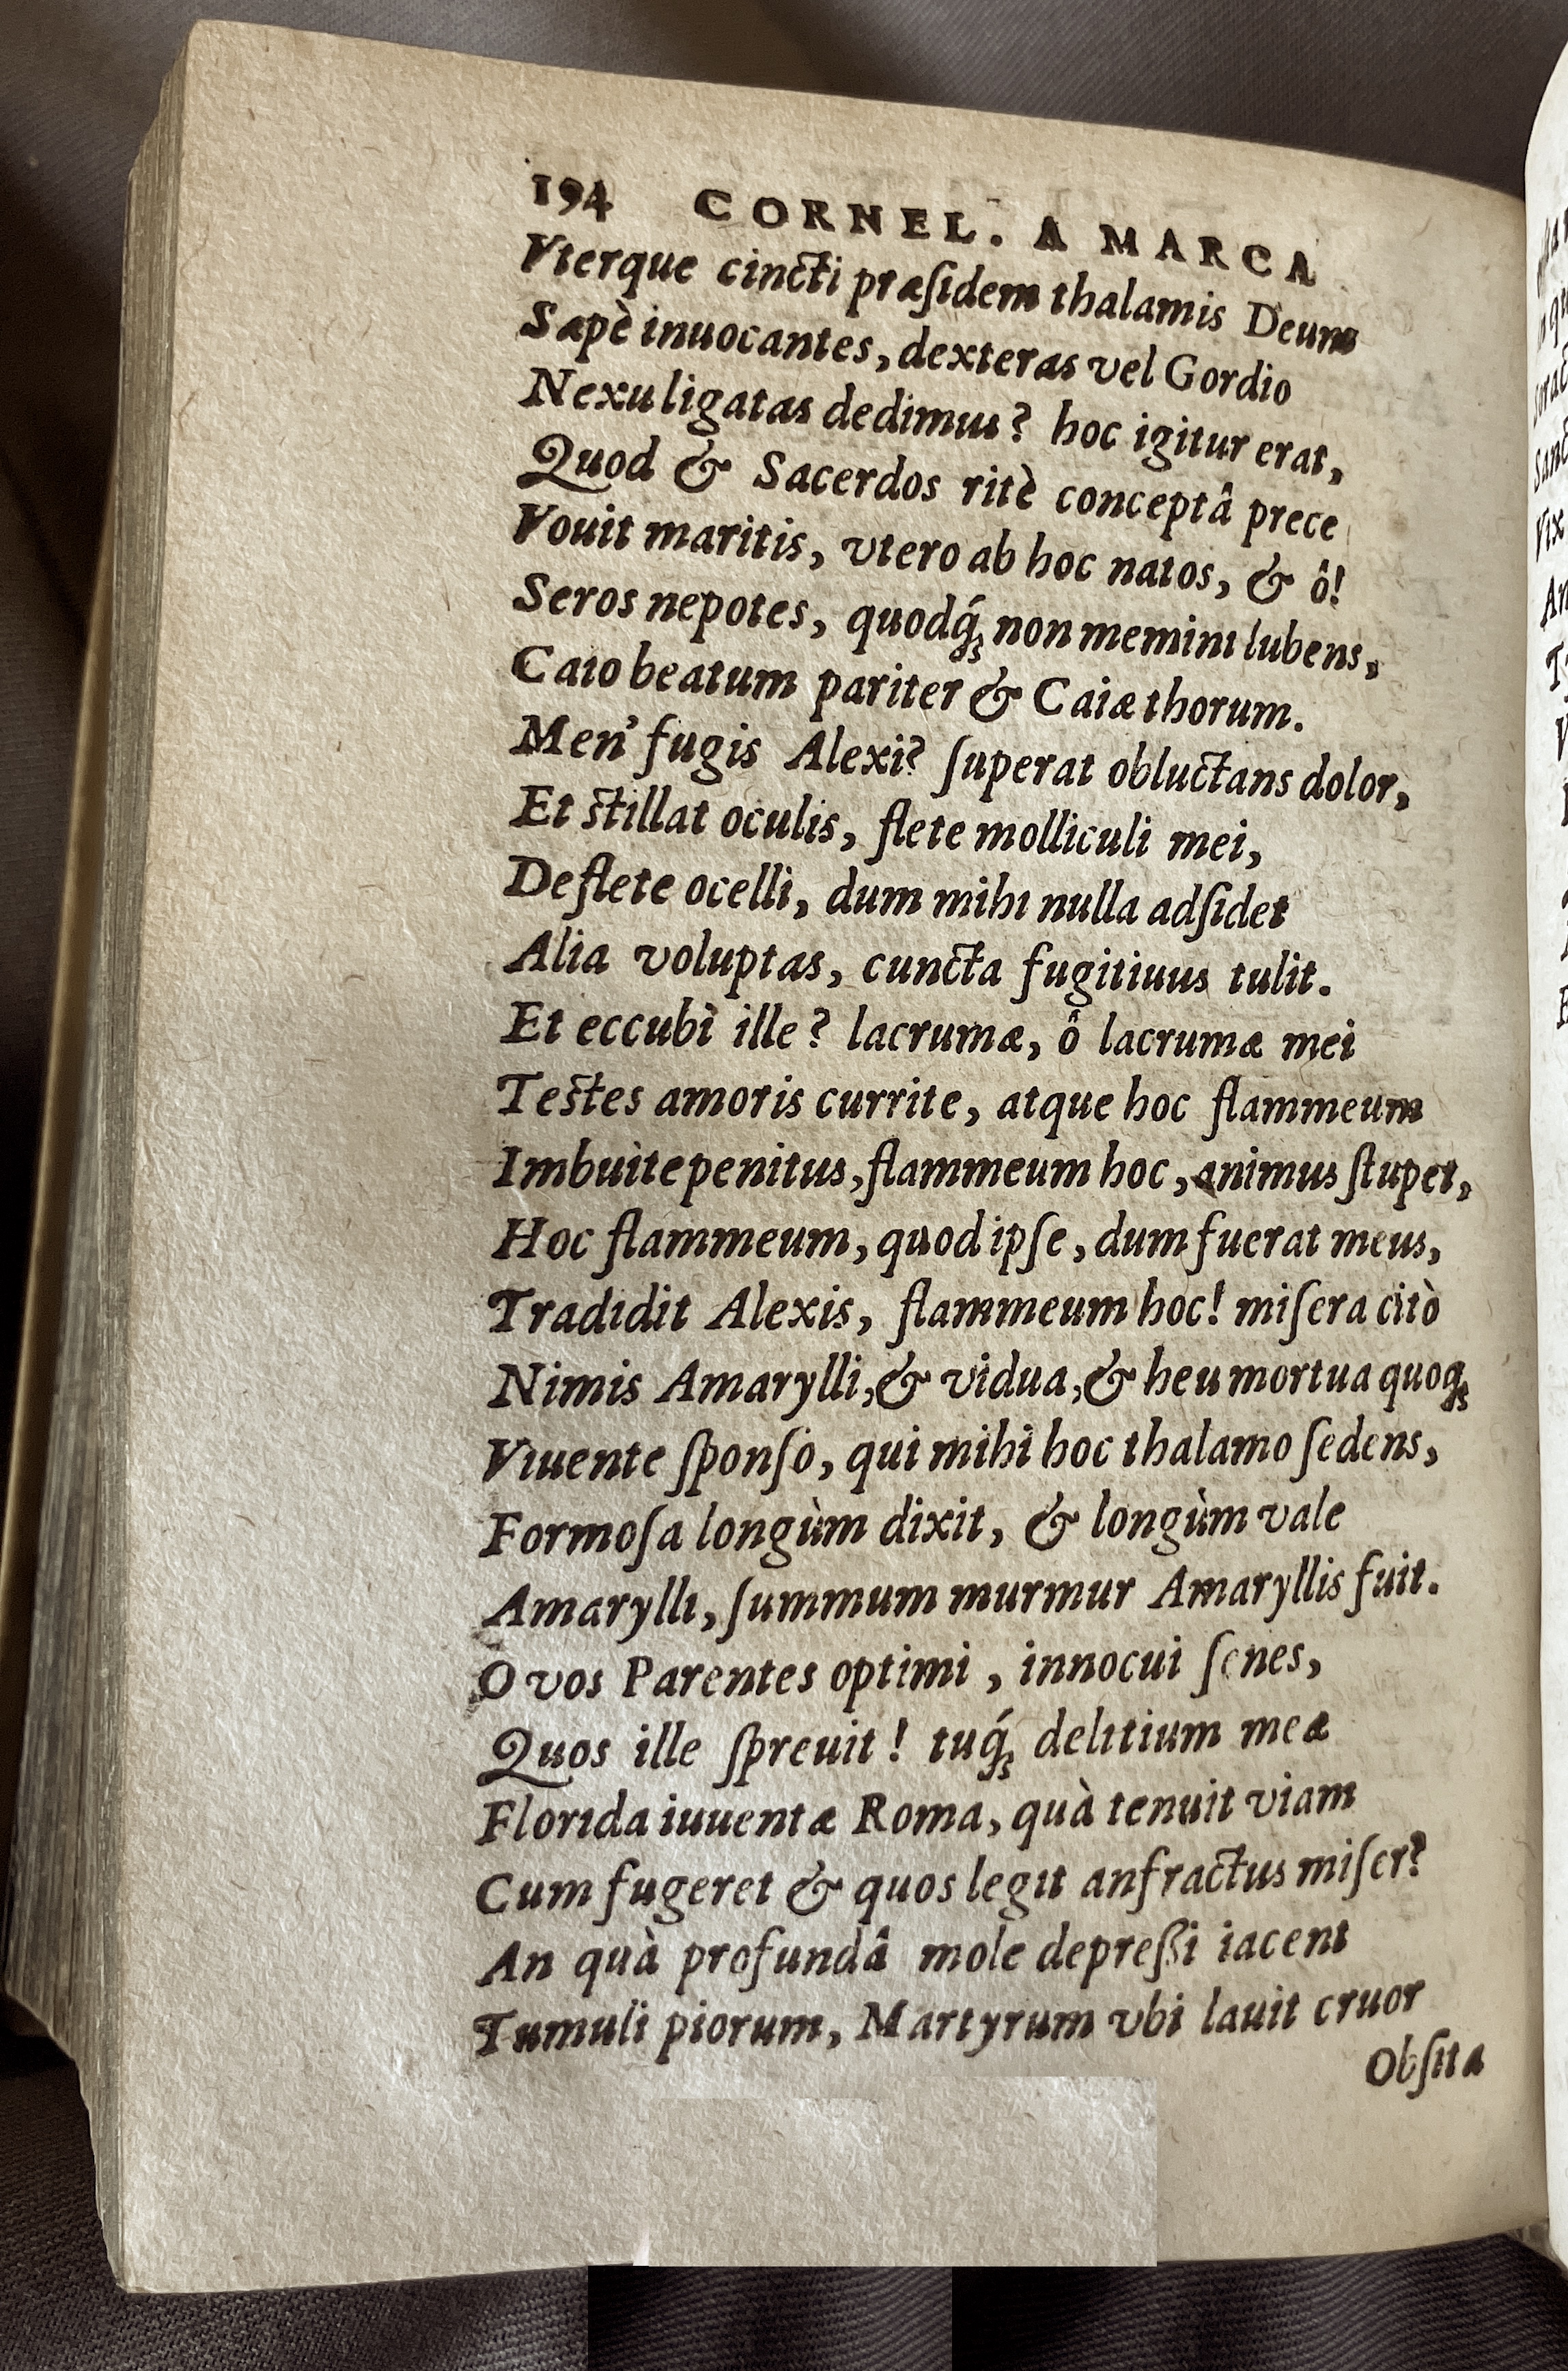 194 CORNEL. A MARCA
Vterque cincti præſidem thalamis Deum
Sæpè inuocantes, dexteras vel Gordio
Nexu ligatas dedimus? hoc igitur erat,
Quod & Sacerdos ritè conceptâ prece
Vouit maritis, vtero ab hoc natos, & ô!
Seros nepotes, quodq́; non memini lubens,
Caio beatum pariter & Caiæ thorum.
Men' fugis Alexi? ſuperat obluctans dolor,
Et ſtillat oculis, flete molliculi mei,
Deflete ocelli, dum mihi nulla adſidet
Alia voluptas, cuncta fugitiuus tulit.
Et eccubì ille? lacrumæ, ô lacrumæ mei
Teſtes amoris currite, atque hoc flammeum
Imbuite penitus, flammeum hoc, animus ſtupet,
Hoc flammeum, quod ipſe, dum fuerat meus,
Tradidit Alexis, flammeum hoc! miſera citò
Nimis Amarylli, & vidua, & heu mortua quoq;
Viuente ſponſo, qui mihi hoc thalamo ſedens,
Formoſa longùm dixit, & longùm vale
Amarylli, ſummum murmur Amaryllis fuit.
O vos Parentes optimi, innocui ſenes,
Quos ille ſpreuit! tuq́; delitium meæ
Florida iuuentæ Roma, quà tenuit viam
Cum fugeret & quos legit anfractus miſer?
An quà profundâ mole depreßi iacent
Tumuli piorum, Martyrum vbi lauit cruor
Obſita